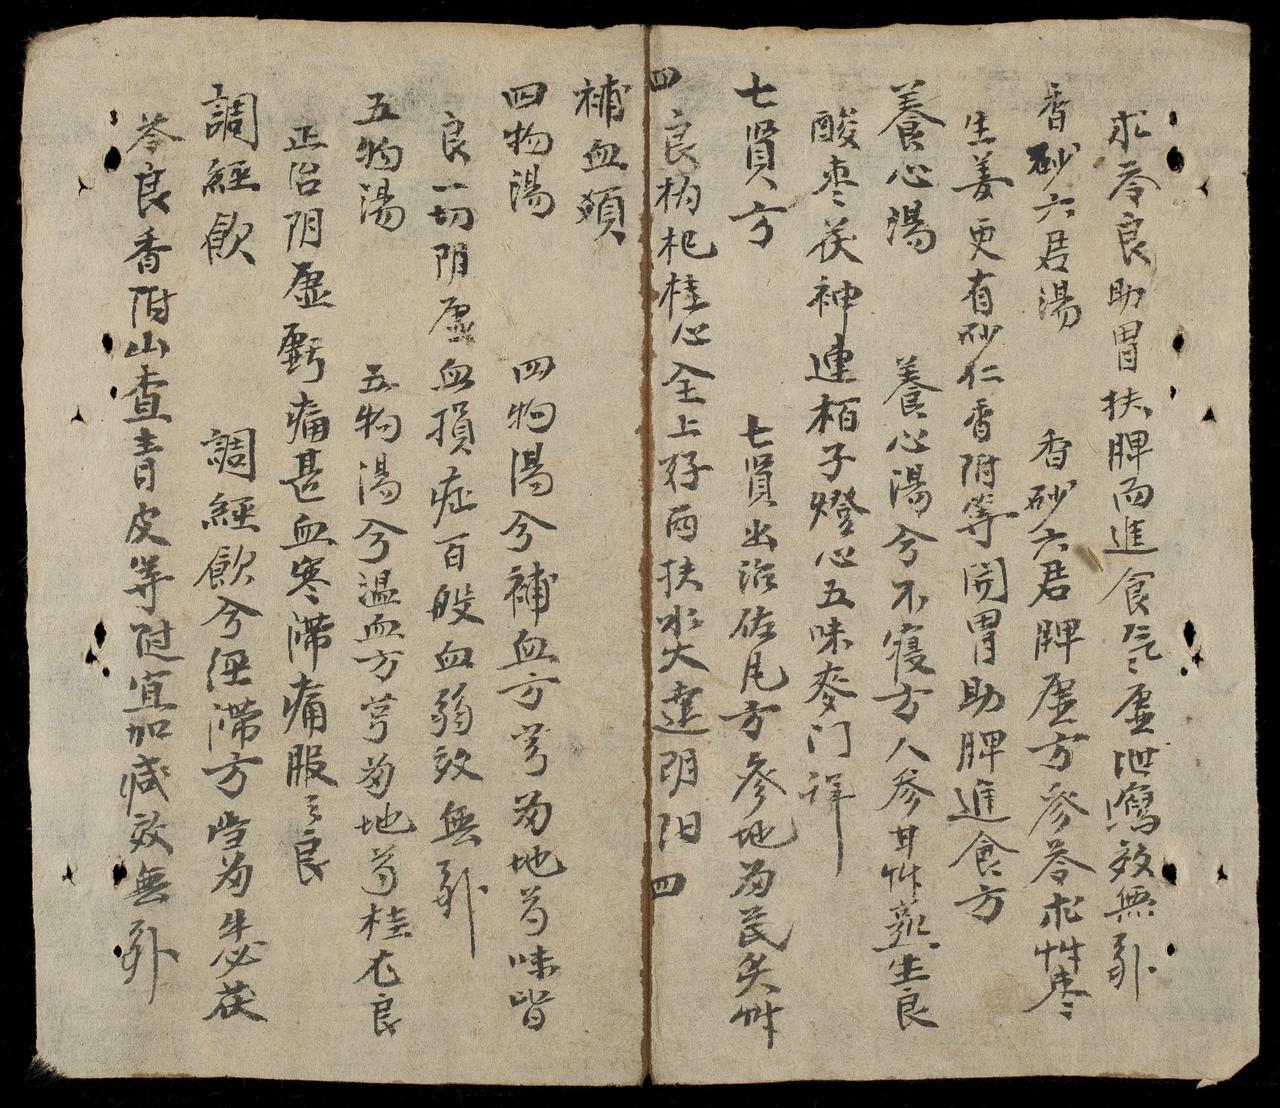 求苓良助胃扶脾而進食气虚泄瀉效無引
香砂六君湯　香砂六君脾虚方參苓朮艸棗
生姜更有砂仁香附等開胃助脾進食方
養心湯　養心湯兮不寢方人參甘艸熟生良
酸枣茯神連栢子燈心五味麥门詳
七賢方　七賢出治佐凡方參地芍芪炙艸
四良枸杞桂心全上好西扶水火達阴阳四
補血類
四物湯　四物湯兮補血方芎芴地芍味皆
良一切阴虚血損症百般血弱效無引
五物湯　五物湯兮温血方芎芴地芍桂尤良
正治阴虚虧痛甚血寒滞痛服之良
調經飲　調經飲兮經滞方芴牛必茯
苓良香附山查青皮等随宜加減效無引